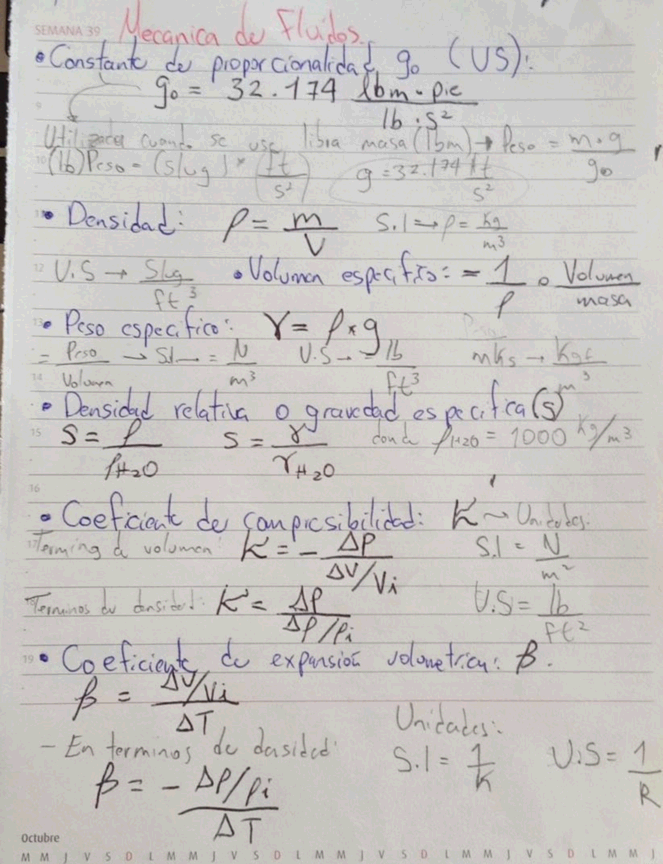 SEMANA 39 Mecanica de Fluidos.
• Constante de proporcionalidad g₀ (US):
g₀ = 32.174 lbm · pie / lb · s²
Utilizada cuando se use libra masa (lbm) → Peso = m·g / g₀
(lb) Peso = (slug) * (ft / s²) g = 32.174 ft / s²
• Densidad: ρ = m / V S.I → ρ = Kg / m³
12 U.S → Slug / ft³ • Volumen especifico: = 1 / ρ o Volumen / masa
• Peso especifico: γ = ρ * g
= Peso / Volumen → S.I → = N / m³ U.S → = lb / ft³ mks → Kgf / m³
14
• Densidad relativa o gravedad especifica (s)
15 S = ρ / ρH₂O S = γ / γH₂O donde ρH₂O = 1000 Kg/m³
16
• Coeficiente de compresibilidad: K ~ Unidades:
Termino d volumen: K = - ΔP / ΔV/Vi S.I = N / m²
Terminos de densidad: K = ΔP / Δρ/ρi U.S = lb / ft²
19 • Coeficiente de expansión volumetrica: β.
β = ΔV/Vi / ΔT
Unidades:
- En terminos de densidad: S.I = 1 / K U.S = 1 / R
β = - Δρ/ρi / ΔT
Octubre
M M J V S D L M M J V S D L M M J V S D L M M J V S D L M M J